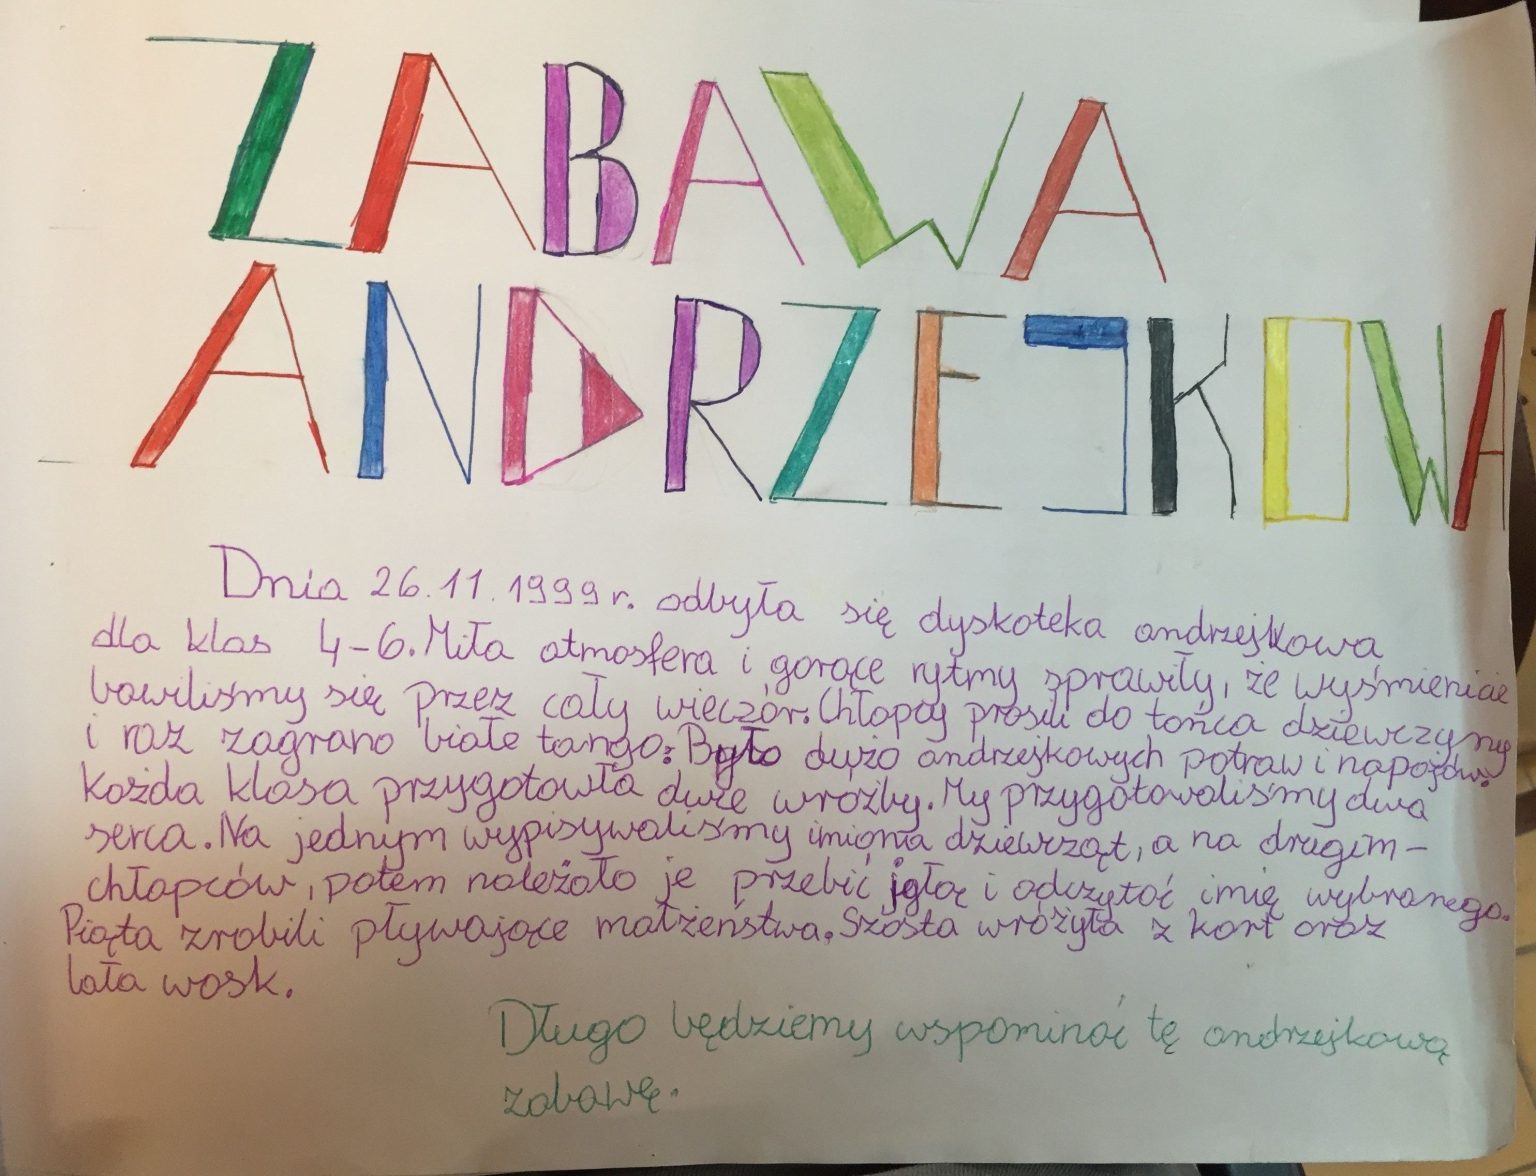 ZABAWA
ANDRZEJKOWA
Dnia 26.11.1999 r. odbyła się dyskoteka andrzejkowa
dla klas 4-6. Miła atmosfera i gorące rytmy sprawiły, że wyśmienicie
bawiliśmy się przez cały wieczór. Chłopcy prosili do tańca dziewczyny
i raz zagrano białe tango. Było dużo andrzejkowych potraw i napojów.
Każda klasa przygotowła dwie wróżby. My przygotowaliśmy dwa
serca. Na jednym wypisywaliśmy imiona dziewcząt, a na drugim -
chłopców, potem należało je przebić igłą i odczytać imię wybranego.
Piąta zrobili pływające małżeństwa. Szósta wróżyła z kart oraz
lała wosk.
Długo będziemy wspominać tę andrzejkową
zabawę.